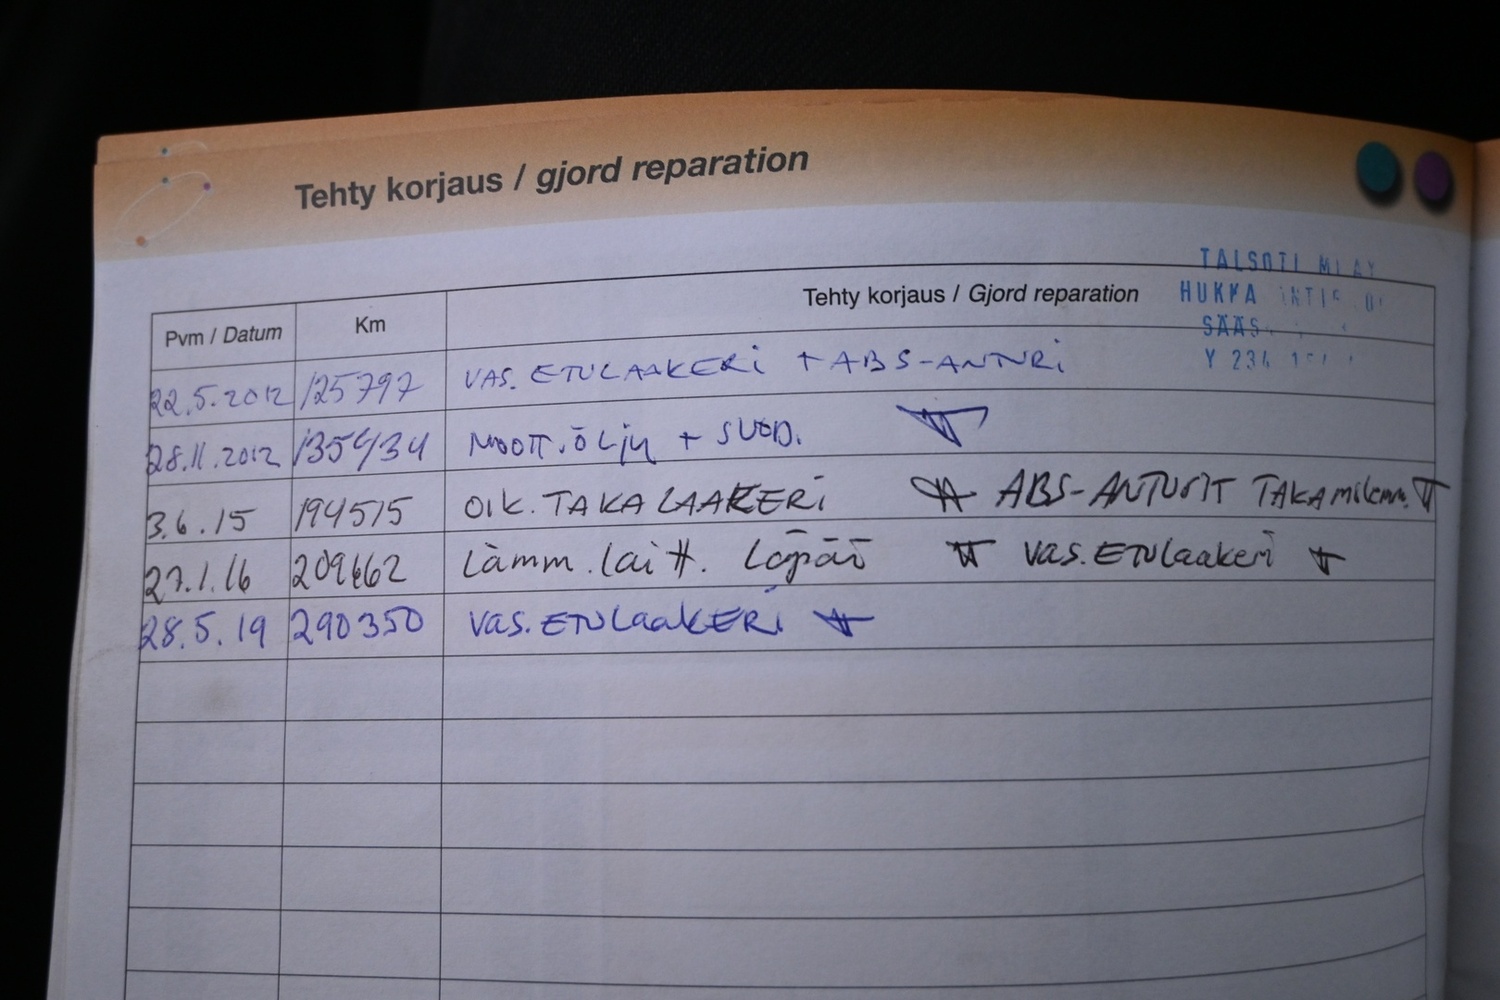 Tehty korjaus / gjord reparation
TALSOTI
HUKKA
SÄÄS
Y 234
Pvm / Datum Km Tehty korjaus / Gjord reparation
22.5.2012 125797 VAS. ETULAAKERi + ABS-ANTURi
28.11.2012 135434 MOOTT.ÖLJY + SUOD.
3.6.15 194515 OIK. TAKALAAKERi ABS-ANTURIT TAKA
27.1.16 209662 Lämm.laitt. Vas.ETULaakeri
28.5.19 290350 Vas.ETULaaKERi